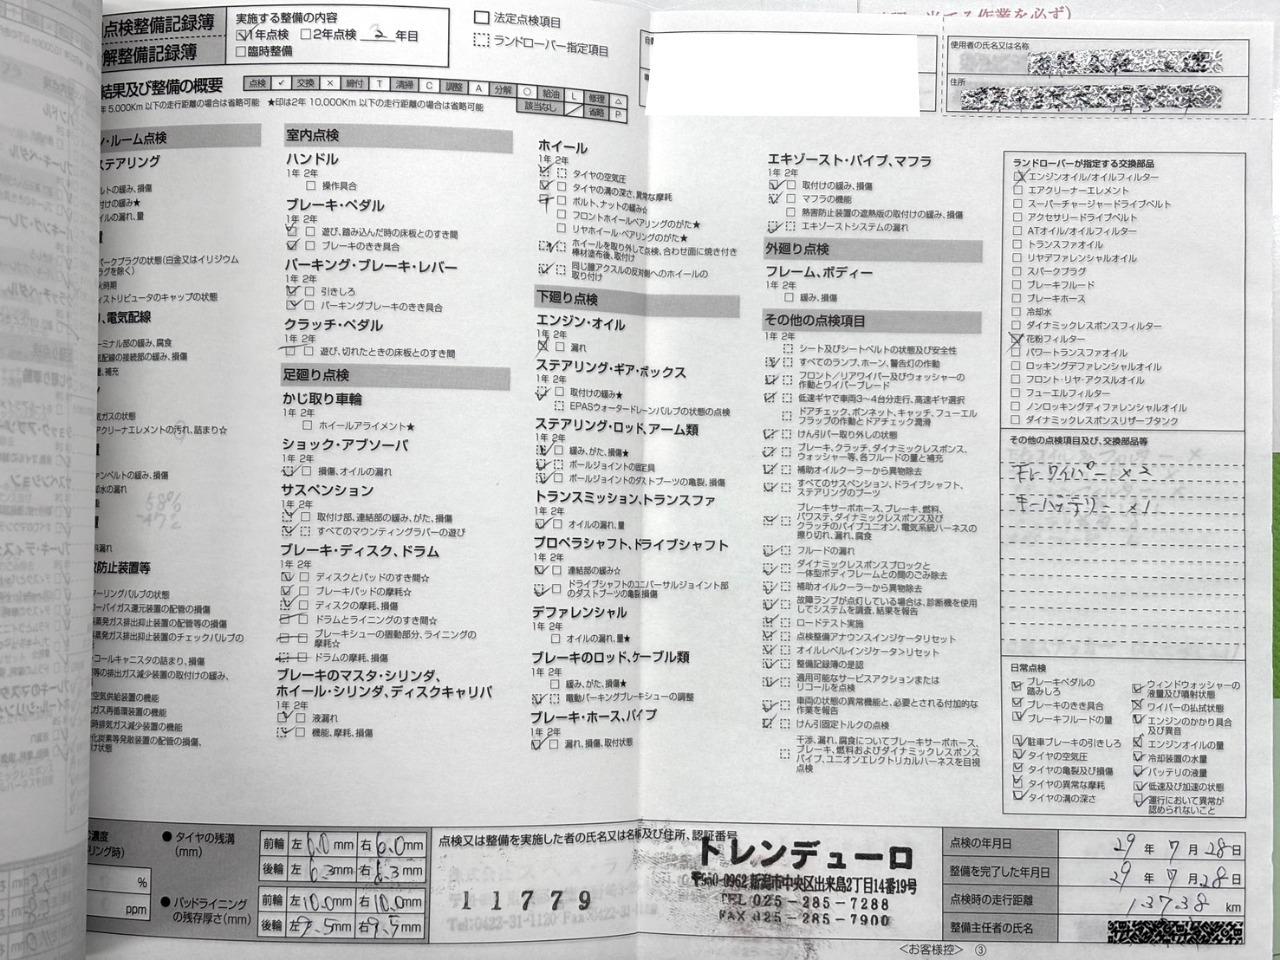 点検整備記録簿
解整備記録簿
実施する整備の内容
1年点検 2年点検 3 年目
臨時整備
法定点検項目
ランドローバー指定項目
使用者の氏名又は名称
住所
結果及び整備の概要
点検 ✓ 交換 × 締付 T 清掃 C 調整 A 分解 ○ 給油 L 修理 △
該当なし 省略 P
年 5,000Km 以下の走行距離の場合は省略可能 ★印は2年 10,000Km 以下の走行距離の場合は省略可能
ン・ルーム点検
ステアリング
ルトの緩み、損傷
付けの緩み★
イルの漏れ、量
パークプラグの状態(白金又はイリジウム
ラグを除く)
火時期
ィストリビュータのキャップの状態
リ、電気配線
ーミナル部の緩み、腐食
気配線の接続部の緩み、損傷
気ガスの状態
アクリーナエレメントの汚れ、詰まり☆
ァンベルトの緩み、損傷
却水の漏れ
防止装置等
ーリングバルブの状態
ーバイガス還元装置の配管の損傷
蒸発ガス排出抑止装置の配管等の損傷
蒸発ガス排出抑止装置のチェックバルブの
コールキャニスタの詰まり、損傷
等の排出ガス減少装置の取付けの緩み、
空気供給装置の機能
ガス再循環装置の機能
時排気ガス減少装置の機能
化炭素等発散装置の配管の損傷、
室内点検
ハンドル
1年 2年
操作具合
ブレーキ・ペダル
1年 2年
遊び、踏み込んだ時の床板とのすき間
ブレーキのきき具合
パーキング・ブレーキ・レバー
1年 2年
引きしろ
パーキングブレーキのきき具合
クラッチ・ペダル
1年 2年
遊び、切れたときの床板とのすき間
足廻り点検
かじ取り車輪
1年 2年
ホイールアライメント★
ショック・アブソーバ
1年 2年
損傷、オイルの漏れ
サスペンション
1年 2年
取付け部、連結部の緩み、がた、損傷
すべてのマウンティングラバーの遊び
ブレーキ・ディスク、ドラム
1年 2年
ディスクとパッドのすき間☆
ブレーキパッドの摩耗☆
ディスクの摩耗、損傷
ドラムとライニングのすき間☆
ブレーキシューの摺動部分、ライニングの
摩耗☆
ドラムの摩耗、損傷
ブレーキのマスタ・シリンダ、
ホイール・シリンダ、ディスクキャリパ
1年 2年
液漏れ
機能、摩耗、損傷
ホイール
1年 2年
タイヤの空気圧
タイヤの溝の深さ、異常な摩耗
ボルト、ナットの緩み☆
フロントホイールベアリングのがた★
リヤホイール・ベアリングのがた★
ホイールを取り外して点検、合わせ面に焼き付き
棒材塗布後、取付け
同じ軸アクスルの反対側へのホイールの
取り付け
下廻り点検
エンジン・オイル
1年 2年
漏れ
ステアリング・ギア・ボックス
1年 2年
取付けの緩み★
EPASウォータードレーンバルブの状態の点検
ステアリング・ロッド、アーム類
1年 2年
緩み、がた、損傷★
ボールジョイントの固定具
ボールジョイントのダストブーツの亀裂、損傷
トランスミッション、トランスファ
1年 2年
オイルの漏れ、量
プロペラシャフト、ドライブシャフト
1年 2年
連結部の緩み☆
ドライブシャフトのユニバーサルジョイント部
のダストブーツの亀裂損傷
デファレンシャル
1年 2年
オイルの漏れ、量★
ブレーキのロッド、ケーブル類
1年 2年
緩み、がた、損傷★
電動パーキングブレーキシューの調整
ブレーキ・ホース、パイプ
1年 2年
漏れ、損傷、取付状態
エキゾースト・パイプ、マフラ
1年 2年
取付けの緩み、損傷
マフラの機能
熱害防止装置の遮熱版の取付けの緩み、損傷
エキゾーストシステムの漏れ
外廻り点検
フレーム、ボディー
1年 2年
緩み、損傷
その他の点検項目
1年 2年
シート及びシートベルトの状態及び安全性
すべてのランプ、ホーン、警告灯の作動
フロント/リアワイパー及びウォッシャーの
作動とワイパーブレード
低速ギヤで車両3~4台分走行、高速ギヤ選択
ドアチェック、ボンネット、キャッチ、フューエル
フラップの作動とドアチェック潤滑
けん引バー取り外しの状態
ブレーキ、クラッチ、ダイナミックレスポンス、
ウォッシャー等、各フルードの量と補充
補助オイルクーラーから異物除去
すべてのサスペンション、ドライブシャフト、
ステアリングのブーツ
ブレーキサーボホース、ブレーキ、燃料、
パワステ、ダイナミックレスポンス及び
クラッチのパイプユニオン、電気系統ハーネスの
擦り切れ、漏れ、腐食
フルードの漏れ
ダイナミックレスポンスブロックと
一体型ボディフレームとの間のごみ除去
補助オイルクーラーから異物除去
故障ランプが点灯している場合は、診断機を使用
してシステムを調査、結果を報告
ロードテスト実施
点検整備アナウンスインジケータリセット
オイルレベルインジケタ>リセット
整備記録簿の是認
適用可能なサービスアクションまたは
リコールを点検
車両の状態の異常機能と、必要とされる付加的な
作業を報告
けん引固定トルクの点検
干渉、漏れ、腐食についてブレーキサーボホース、
ブレーキ、燃料およびダイナミックレスポンス
パイプ、ユニオンエレクトリカルハーネスを目視
点検
ランドローバーが指定する交換部品
エンジンオイル/オイルフィルター
エアクリーナーエレメント
スーパーチャージャードライブベルト
アクセサリードライブベルト
ATオイル/オイルフィルター
トランスファオイル
リヤデファレンシャルオイル
スパークプラグ
ブレーキフルード
ブレーキホース
冷却水
ダイナミックレスポンスフィルター
花粉フィルター
パワートランスファオイル
ロッキングデファレンシャルオイル
フロント・リヤ・アクスルオイル
フューエルフィルター
ノンロッキングディファレンシャルオイル
ダイナミックレスポンスリザーブタンク
その他の点検項目及び、交換部品等
ワイパー ×2
キーバッテリー ×1
日常点検
ブレーキペダルの
踏みしろ
ブレーキのきき具合
ブレーキフルードの量
駐車ブレーキの引きしろ
タイヤの空気圧
タイヤの亀裂及び損傷
タイヤの異常な摩耗
タイヤの溝の深さ
ウィンドウォッシャーの
液量及び噴射状態
ワイパーの払拭状態
エンジンのかかり具合
及び異音
エンジンオイルの量
冷却装置の水量
バッテリの液量
低速及び加速の状態
運行において異常が
認められないこと
濃度
リング時)
%
ppm
● タイヤの残溝
(mm)
前輪 左 6.0 mm 右 6.0 mm
後輪 左 6.3 mm 右 6.3 mm
● パッドライニング
の残存厚さ(mm)
前輪 左 10.0 mm 右 10.0 mm
後輪 左 9.5 mm 右 9.5 mm
点検又は整備を実施した者の氏名又は名称及び住所、認証番号
11779
トレンデューロ
〒950-0962 新潟市中央区出来島2丁目14番19号
TEL 025-285-7288
FAX 025-285-7900
点検の年月日 29 年 7 月 28 日
整備を完了した年月日 29 年 7 月 28 日
点検時の走行距離 13738 km
整備主任者の氏名
<お客様控> ③